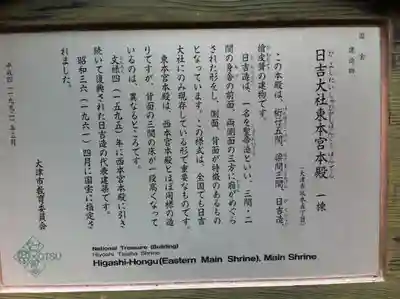 国宝
建造物
日吉大社東本宮本殿 一棟
(大津市坂本五丁目)
この本殿は、桁行五間、梁間三間、日吉造、
檜皮葺の建物です。
日吉造は、一名を聖帝造といい、三間・二
間の身舎の前面、両側面の三方に庇がめぐら
された形をし、側面、背面が特徴のあるもの
となっています。この様式は、全国でも日吉
大社にのみ現存している形で重要なものです。
東本宮本殿は、西本宮本殿とほぼ同様の造
りですが、背面の三間の床が一段高くなって
いるのは、異なるところです。
文禄四(一五九五)年に西本宮本殿に引き
続いて復興された日吉造の代表建築で
昭和三六(一九六一)四月に国宝に指定さ
れました。
平成四(一九九二)年三月
大津市教育委員会
OTSU
National Treasure (Building)
Hiyoshi Taisha Shrine
Higashi-Hongu(Eastern Main Shrine), Main Shrine